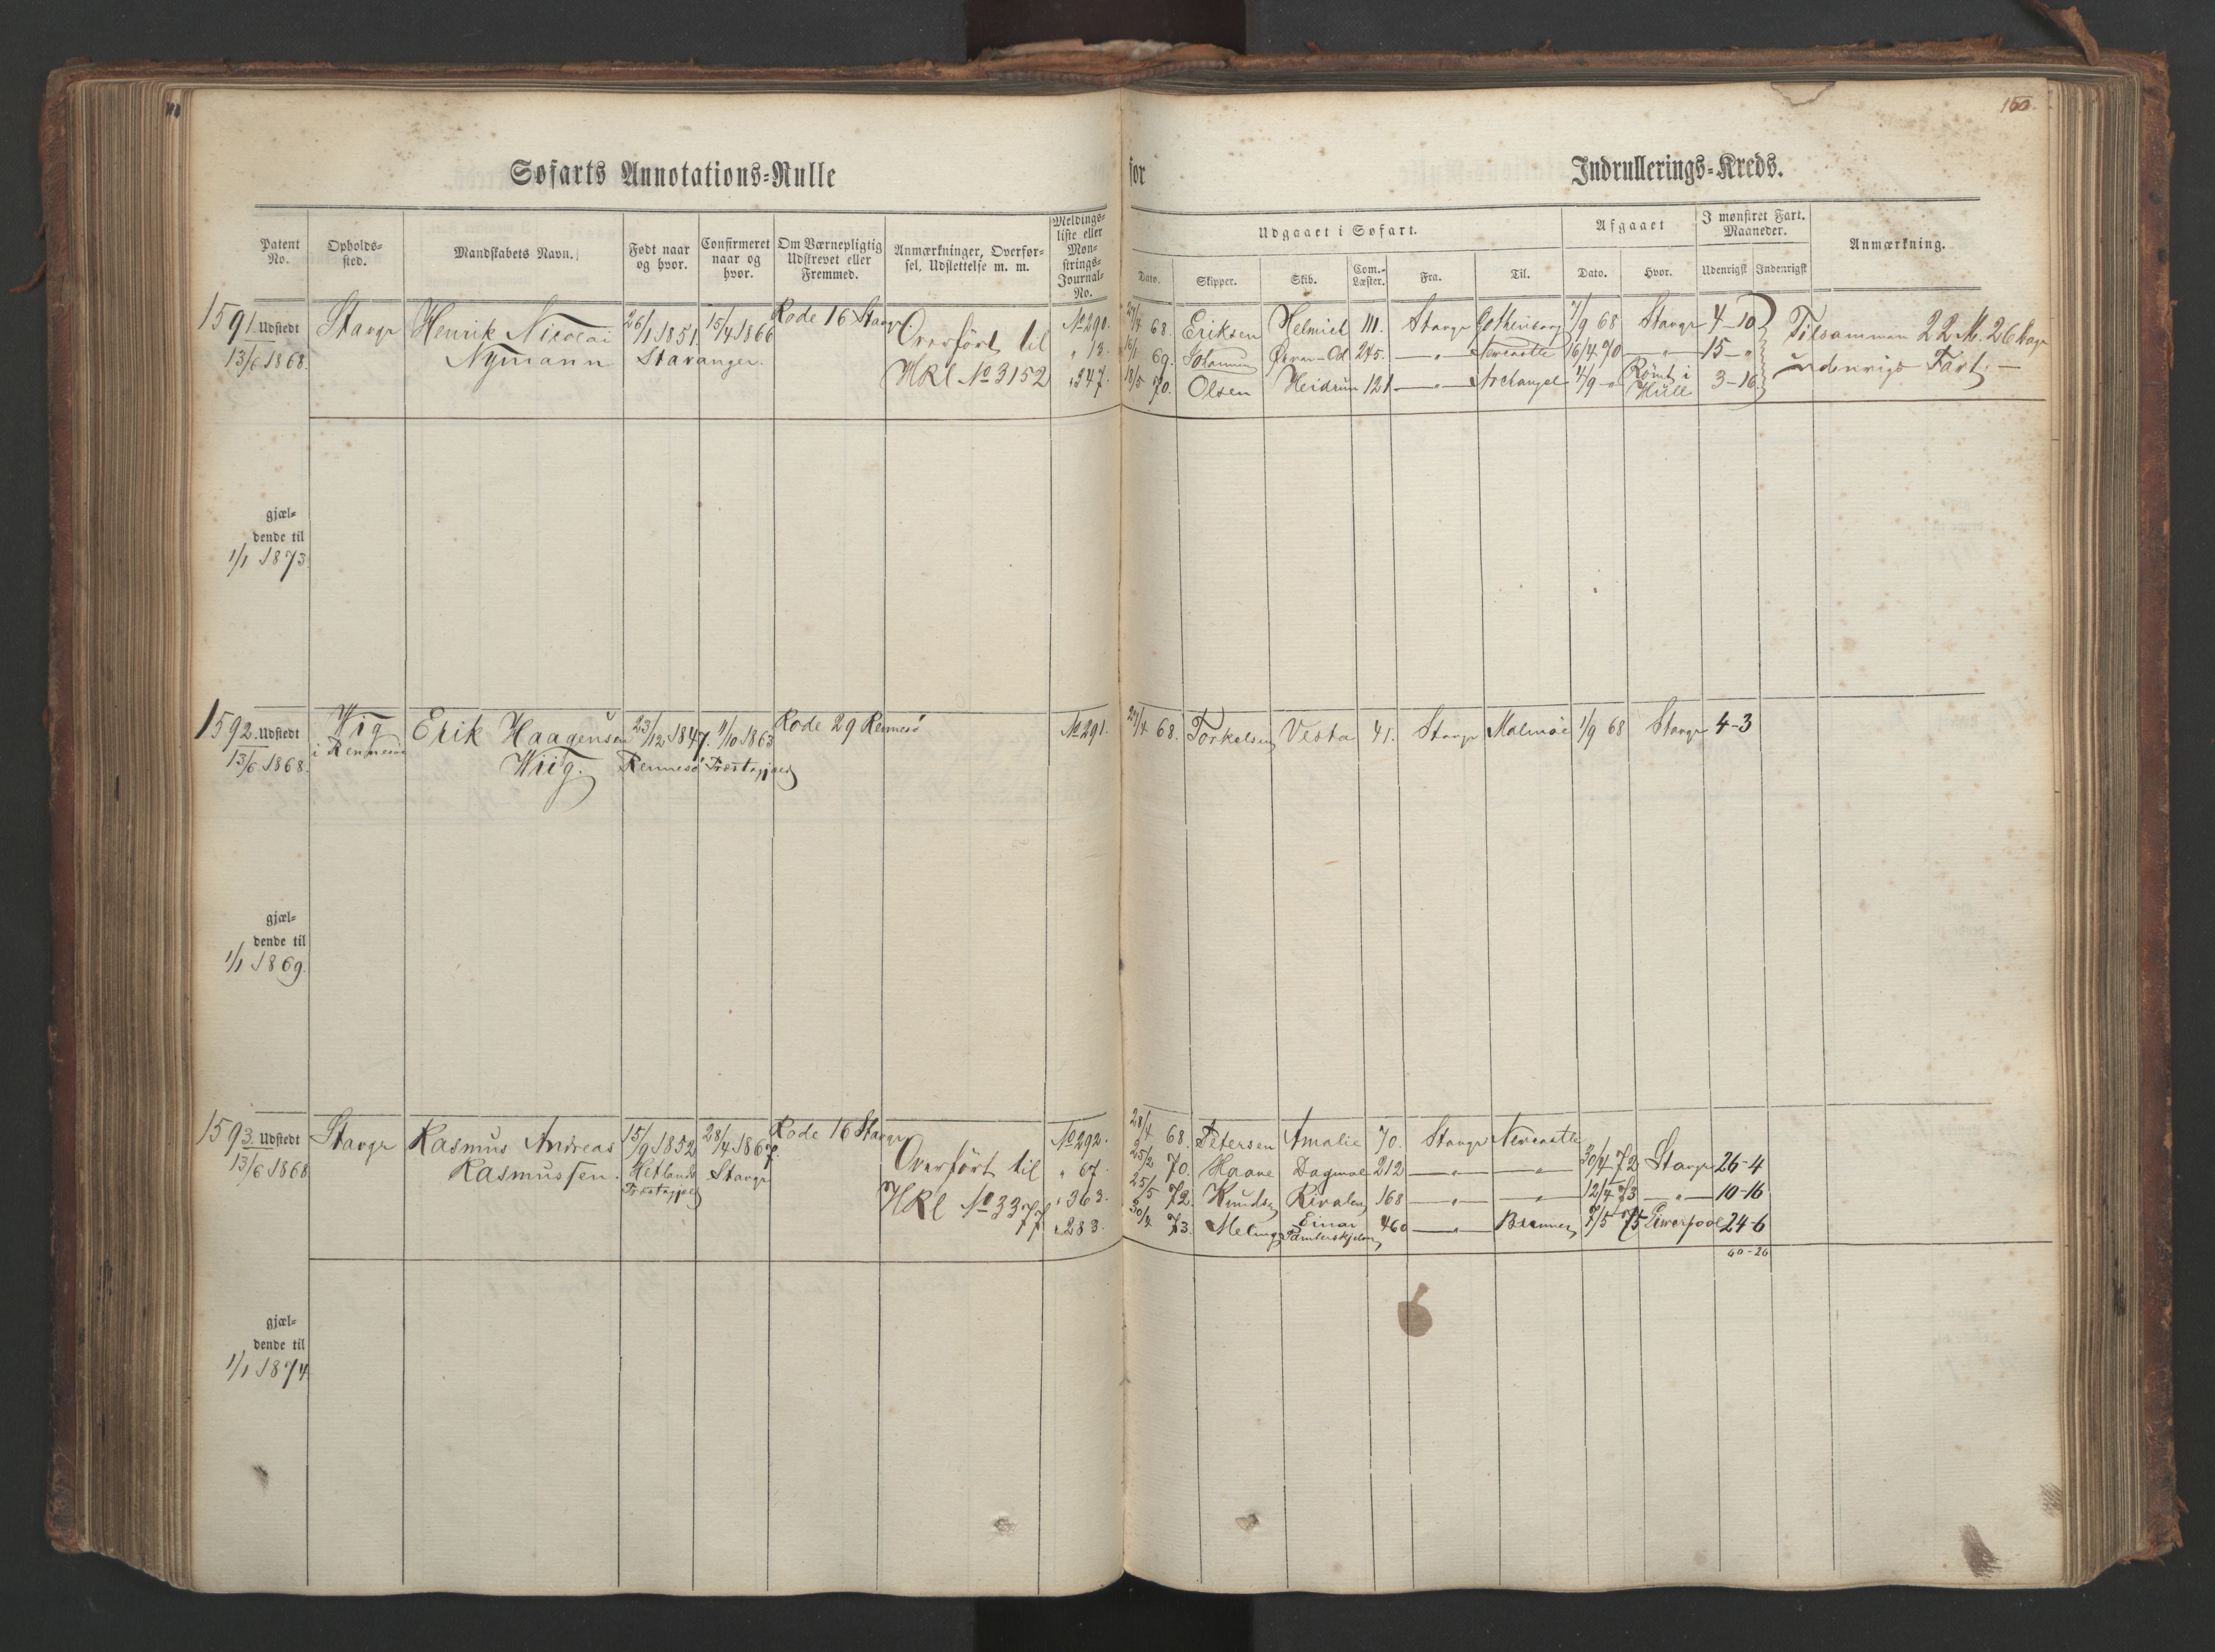 160.
Søfarts Annotations-Rulle for Indrullerings-Kreds.
Patent No. Opholds-sted. Mandskabets Navn. Født naar og hvor. Confirmeret naar og hvor. Om Værnepligtig Udskrevet eller Fremmed. Anmærkninger, Overfør-sel, Udslettelse m. m. Meldings-liste eller Møn-strings-Journal-No.
Udgaaet i Søfart. Afgaaet I mønstret Fart. Maaneder. Anmærkning.
Dato. Skipper. Skib. Com.-Læster. Fra. Til. Dato. Hvor. Udenrigsk Indenrigsk
1591. Udstedt Stavgr Henrik Nicolai 26/1 1851. 15/4 1866 Rode 16 Stavgr. Overført til No 290. 24/4 68. Eriksen Helmich 111. Stavgr Gothenborg 7/9 68 Stavgr 4-10 Tilsammen 22 M. 26 Dage
13/6 1868. Nymann Stavanger. HRl No 3152 " 13. 16/1 69. 245. —"— Newcastle 16/4 70 —"— 15-"
" 347. 18/5 70. Olsen Heidrun 121 —"— Archangel 4/9 -" Römt i Hull 3-16 udenrigs Fart. —
gjæl-
dende til
1/1 1873
1592. Udstedt Wig Erik Haagensen 23/12 1847. 11/10 1863 Rode 29 Rennesø No 291. 24/4 68. Torkelsen Vesta 41. Stavgr Malmøe 1/9 68 Stavgr 4-3
13/6 1868. i Rennesø Wiig. Rennesø Præstegjæld
gjæl-
dende til
1/1 1869.
1593. Udstedt Stavgr Rasmus Andreas 15/9 1852 28/4 1867. Rode 16 Stavgr Overført til No 292. 28/4 68. Petersen Amalie 70. Stavgr Newcastle
13/6 1868 Rasmussen. Hetlands Præstegjæld Stavgr HRl No 3377. " 67. 25/2 70. Haave Dagmar 212 —"— —"— 30/4 72 Stavgr 26-4
" 363. 25/5 72. Knudsen Rivalen 168 —"— —"— 12/4 73 —"— 10-16
" 283. 30/4 73. Meling Einar Tamberskjelver 460 —"— Bremen 7/5 75 Liverpool 24-6
60-26
gjæl-
dende til
1/1 1874.